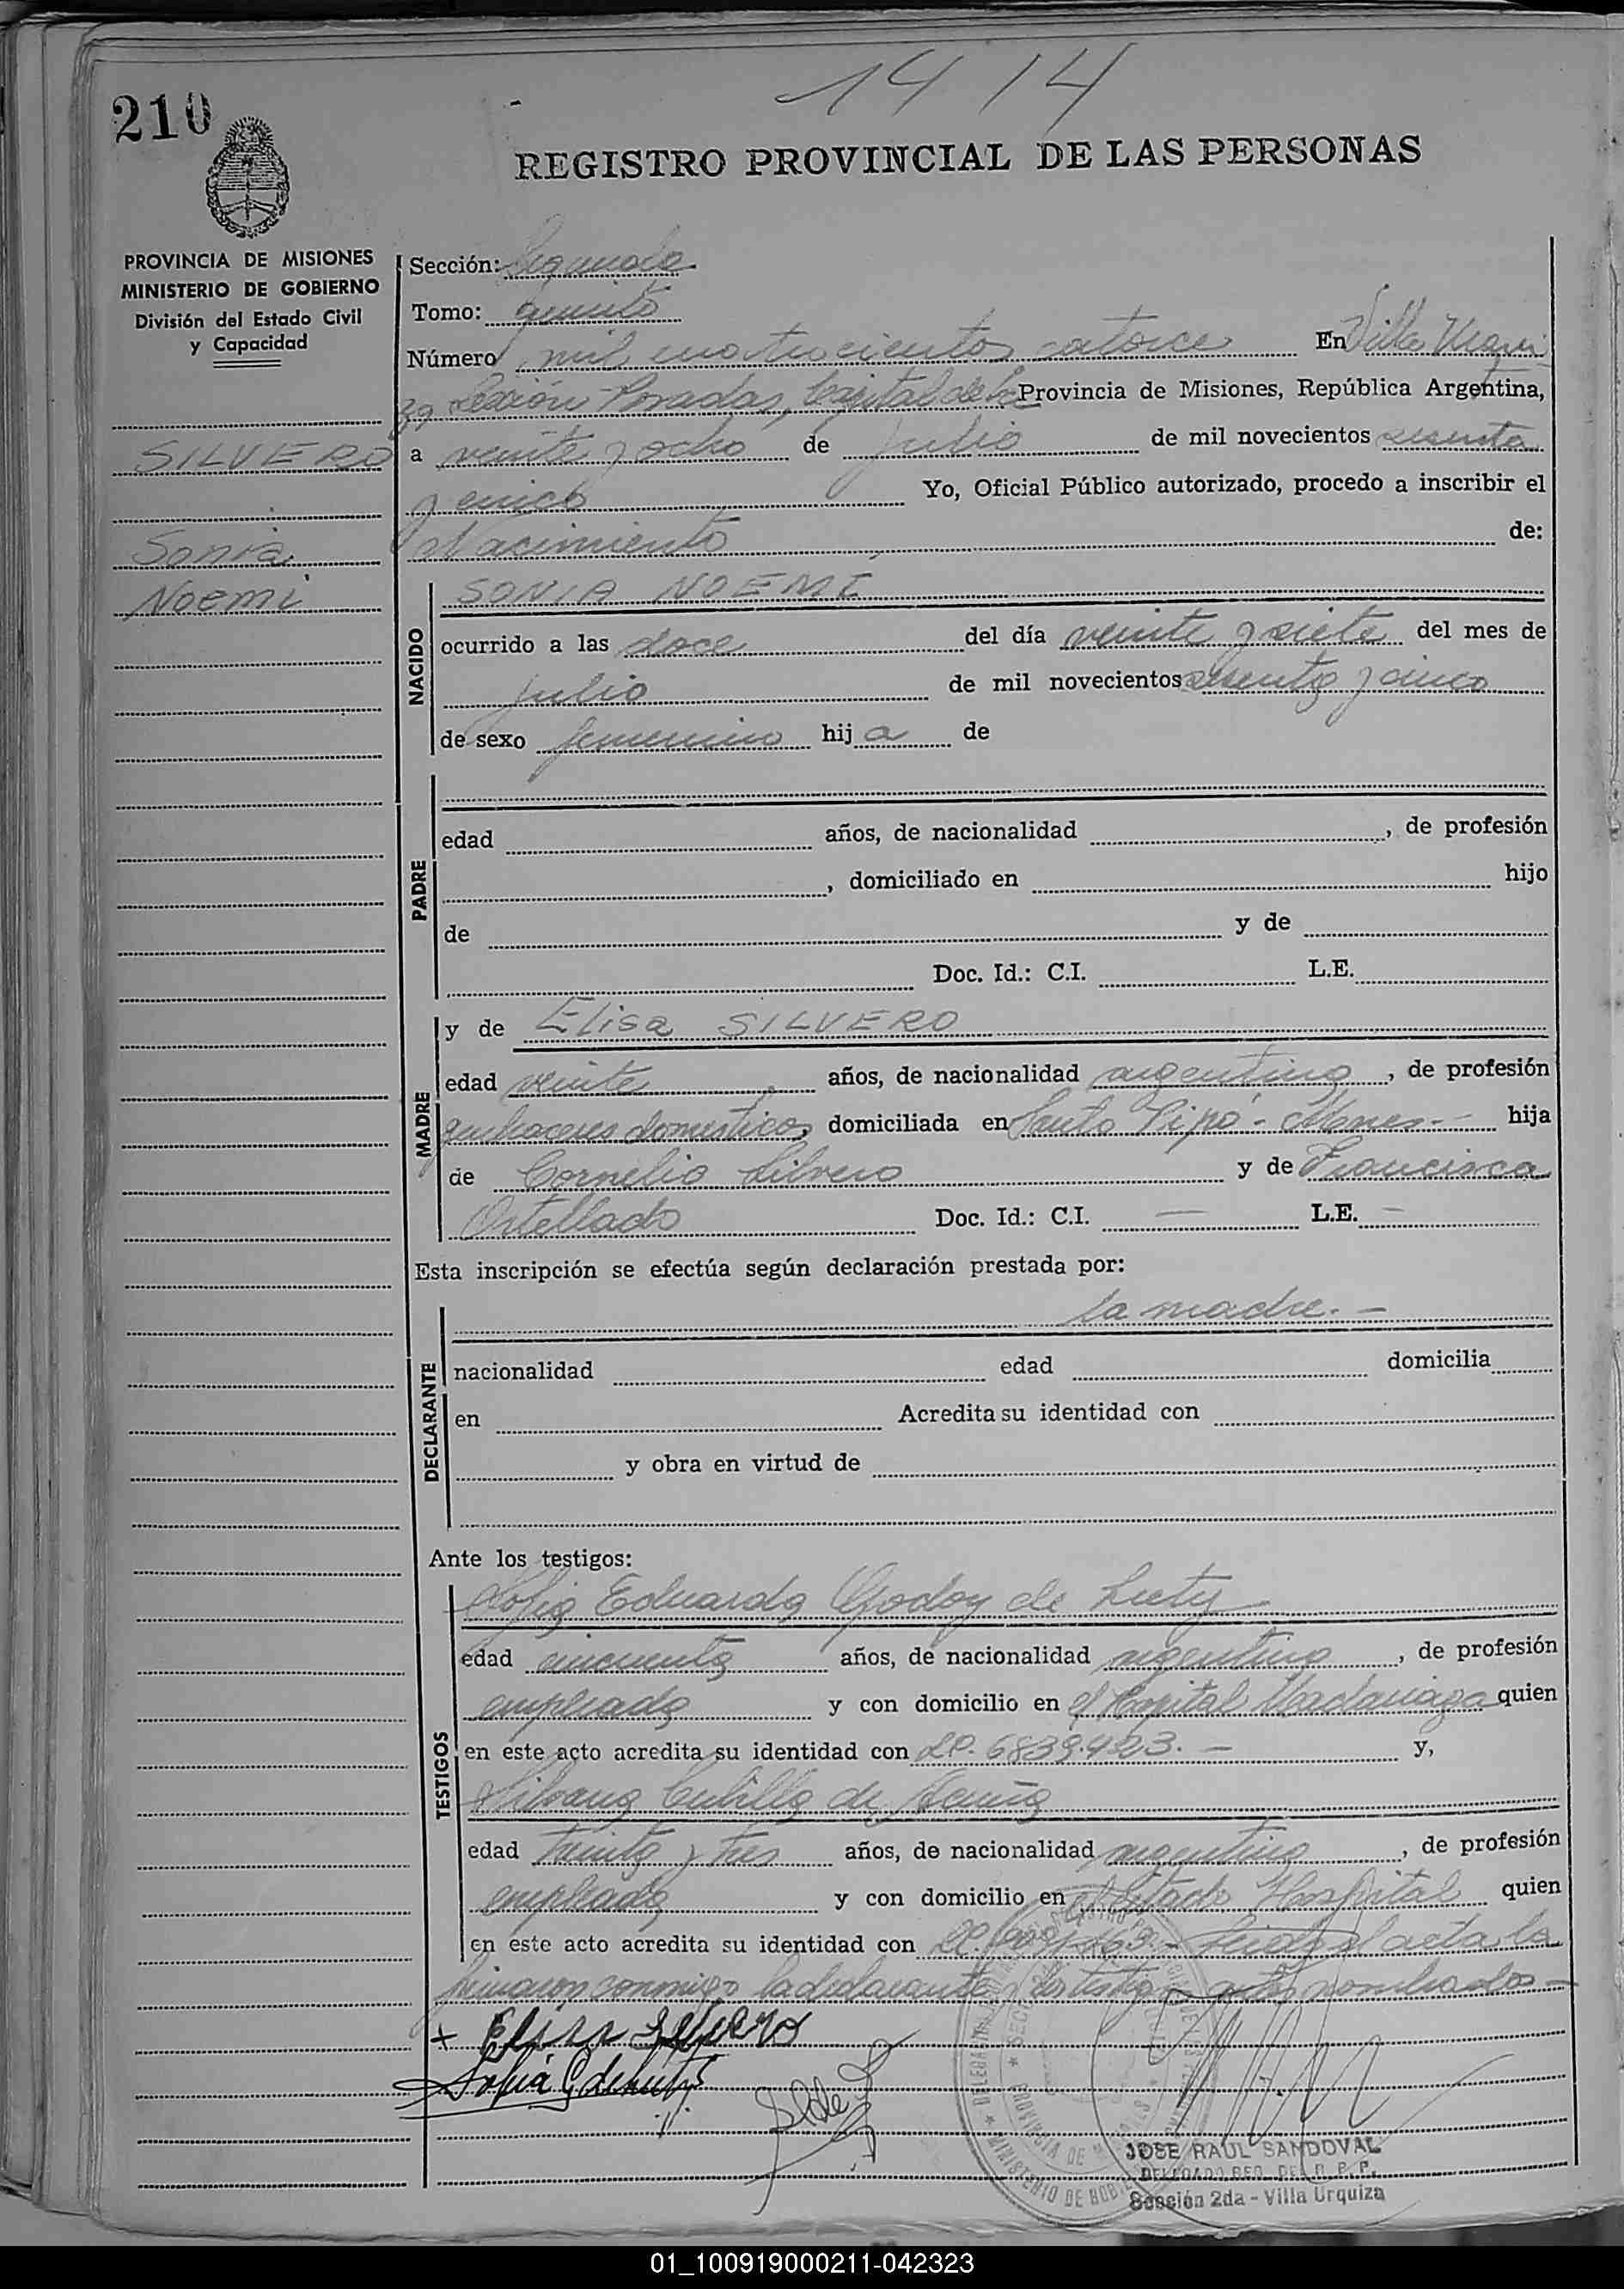 1414
210
REGISTRO PROVINCIAL DE LAS PERSONAS
PROVINCIA DE MISIONES
MINISTERIO DE GOBIERNO
División del Estado Civil
y Capacidad
SILVERO
Sonia
Noemi
Sección: Segunda
Tomo: quinto
Número mil cuatrocientos catorce En Villa Urqui
za Sección Posadas, Capital de la Provincia de Misiones, República Argentina,
a veinte y ocho de Julio de mil novecientos sesenta
y cinco Yo, Oficial Público autorizado, procedo a inscribir el
Nacimiento de:
NACIDO
SONIA NOEMI
ocurrido a las doce del día veinte y siete del mes de
julio de mil novecientos sesenta y cinco
de sexo femenino hija de
PADRE
edad años, de nacionalidad , de profesión
, domiciliado en hijo
de y de
Doc. Id.: C.I. L.E.
MADRE
y de Elisa SILVERO
edad veinte años, de nacionalidad argentina, de profesión
quehaceres domesticos, domiciliada en Santo Pipó - Mnes - hija
de Cornelio Silvero y de Francisca
Ortellado Doc. Id.: C.I. — L.E. -
Esta inscripción se efectúa según declaración prestada por:
DECLARANTE
la madre. -
nacionalidad edad domicilia
en Acredita su identidad con
y obra en virtud de
Ante los testigos:
TESTIGOS
Sofia Eduarda Godoy de
edad cincuenta años, de nacionalidad argentina, de profesión
empleada y con domicilio en el Hospital Madariaga quien
en este acto acredita su identidad con 6839.423. - y,
Silvana de
edad treinta y tres años, de nacionalidad argentina, de profesión
empleada y con domicilio en el citado Hospital quien
en este acto acredita su identidad con Leida el acta la
firmaron conmigo la declarante y los testigos antes nombrados -
+ Elisa Silvero
Sofia G de
JOSE RAUL SANDOVAL
DELEGADO REG. DEL R. P. P.
Sección 2da - Villa Urquiza
01_100919000211-042323